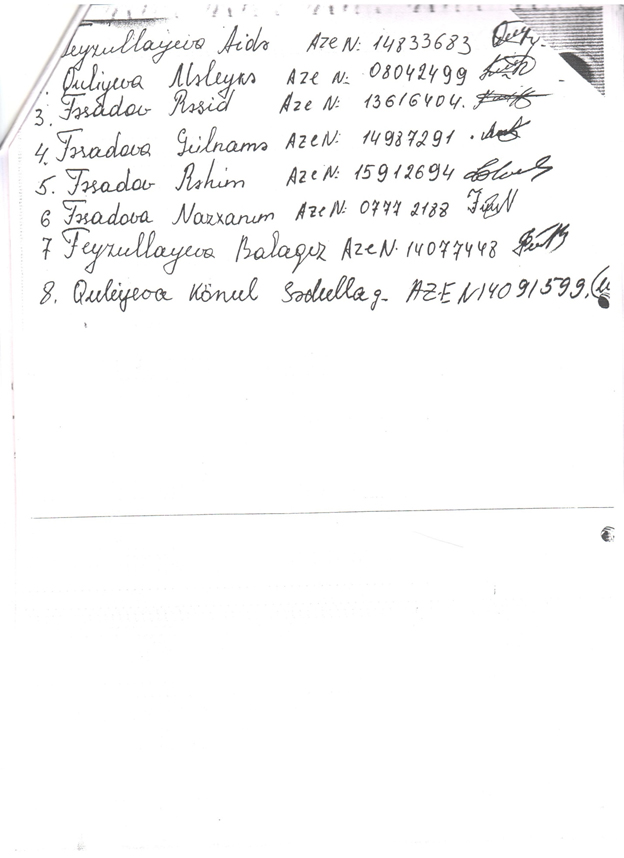 Feyzullayeva Aidə Aze N: 14833683
Quliyeva Mələykə Aze N: 08042499
3. İsgadov Rəşid Aze N: 13616404.
4. İsgadova Gülnamə Aze N: 14987291
5. İsgadov Rəhim Aze N: 15912694
6 İsgadova Nazxanım Aze N: 07772188
7 Feyzullayeva Balaqız Aze N: 14077448
8. Quliyeva Könul Sədulla q. AZE N14091599,